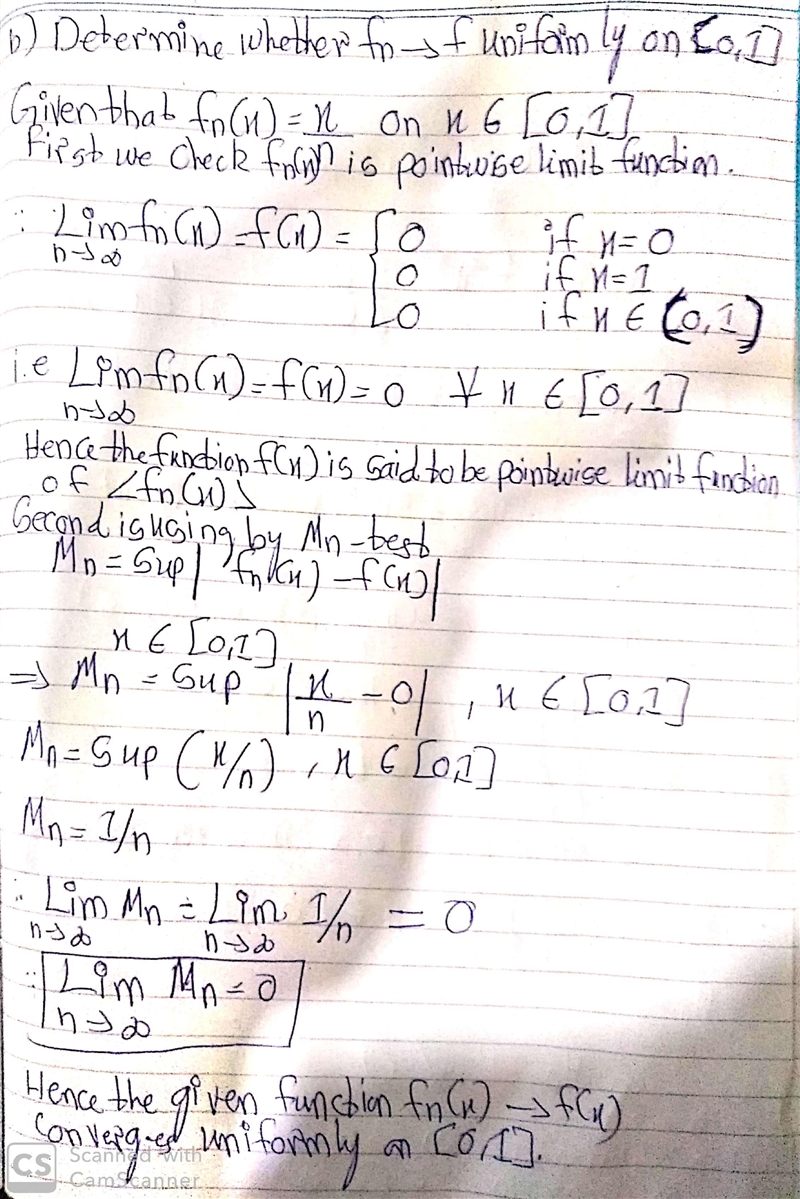 b) Determine whether fn → f uniformly on [0,1]
Given that fn(x) = x/n on x ∈ [0,1]
First we check fn(x) is pointwise limit function.
∴ Lim n→∞ fn(x) = f(x) = { 0 if x=0
0 if x=1
0 if x ∈ (0,1)
i.e Lim n→∞ fn(x) = f(x) = 0 ∀ x ∈ [0,1]
Hence the function f(x) is said to be pointwise limit function
of <fn(x)>
Second is using by Mn-test
Mn = Sup | fn(x) - f(x) |
x ∈ [0,1]
⇒ Mn = Sup | x/n - 0 | , x ∈ [0,1]
Mn = Sup (x/n) , x ∈ [0,1]
Mn = 1/n
∴ Lim n→∞ Mn = Lim n→∞ 1/n = 0
∴ Lim n→∞ Mn = 0
Hence the given function fn(x) → f(x)
Converged uniformly on [0,1].
CS Scanned with
CamScanner